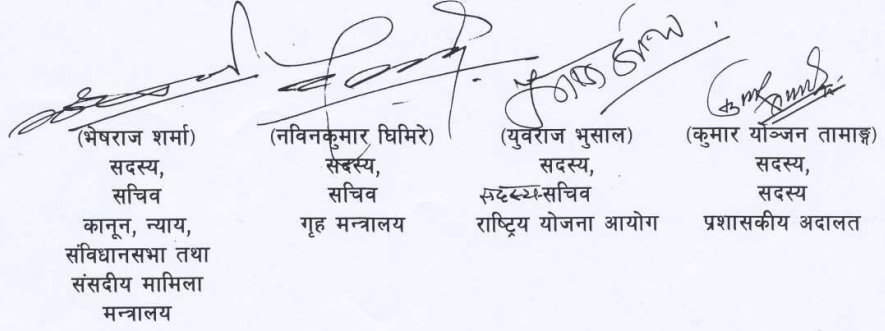 (भेषराज शर्मा)
सदस्य,
सचिव
कानून, न्याय,
संविधानसभा तथा
संसदीय मामिला
मन्त्रालय
(नविनकुमार घिमिरे)
सदस्य,
सचिव
गृह मन्त्रालय
(युवराज भुसाल)
सदस्य,
सदस्य-सचिव
राष्ट्रिय योजना आयोग
(कुमार योञ्जन तामाङ्ग)
सदस्य,
सदस्य
प्रशासकीय अदालत